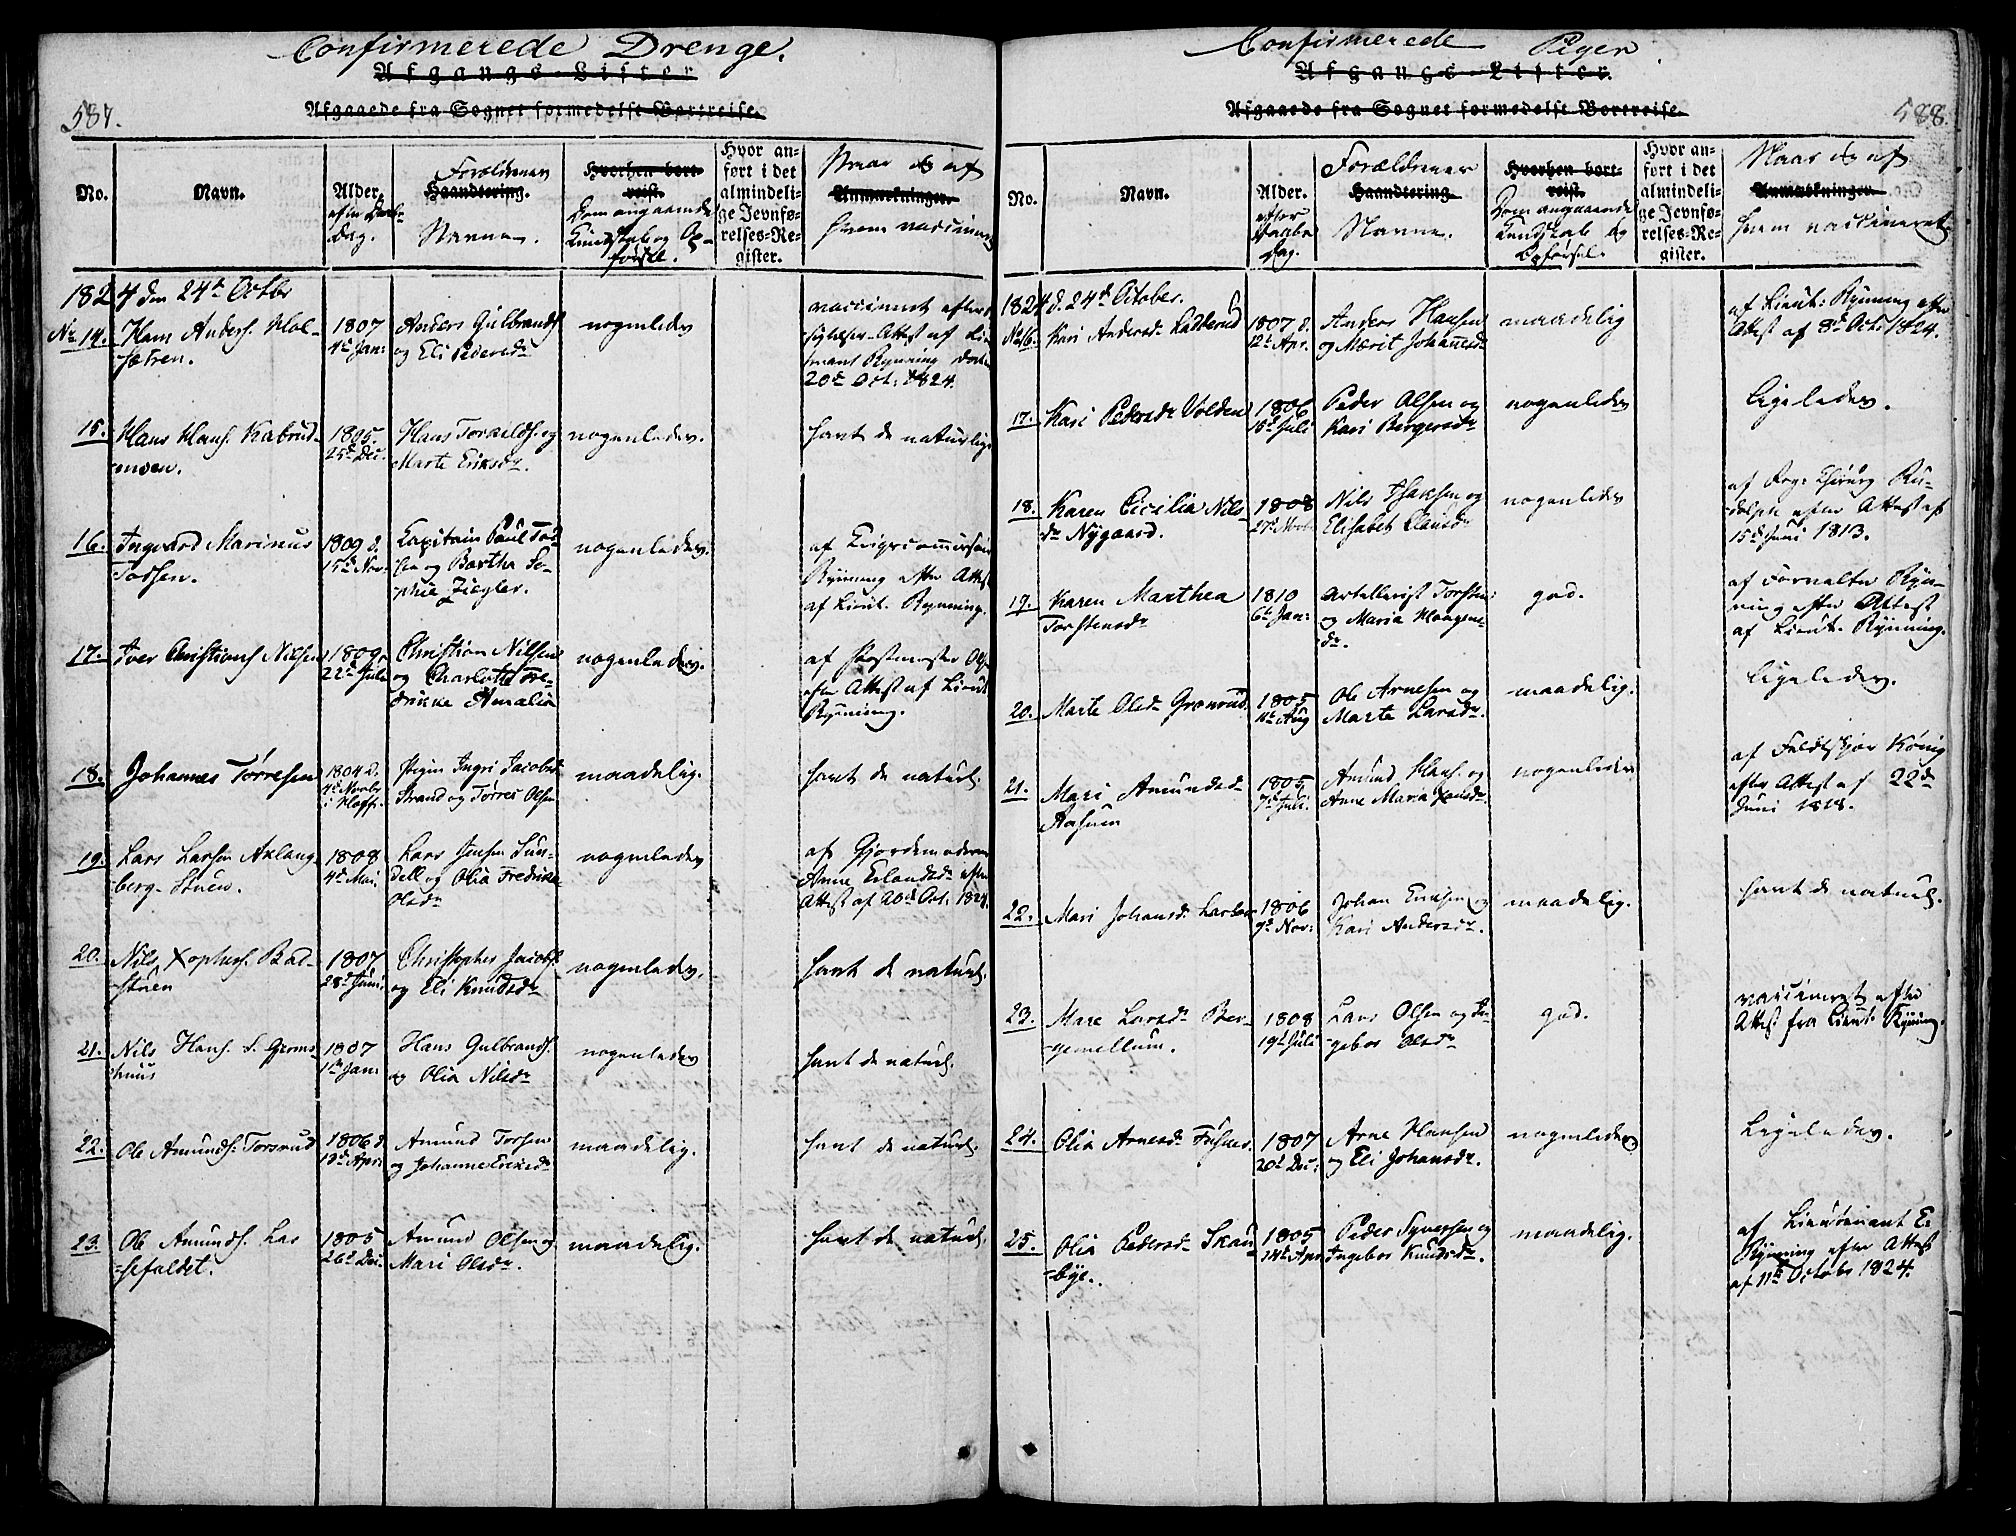 587.
Confirmerede Drenge.
Afgangs-Lister
Afgaaede fra Sognet formedelst Bortreise.
No.
Navn.
Alder.
efter Daabs
Dag.
Forældrenes
Haandtering.
Navne.
Hvorhen bort-
reist.
Dom angaaende
Kundskab og Op-
førsel.
Hvor an-
ført i det
almindeli-
ge Jevnfø-
relses-Re-
gister.
Naar og af
Anmærkninger.
hvem vaccineret
1824 den 24de Octbr
No 14.
Hans Anders. Hol-
sætren.
1807
4de Jan:
Anders Gulbrands.
og Eli Pedersdr
nogenledes
vaccineret efter
Attest af Lieu-
tnant Rynning
20de Oct: 1824.
15.
Hans Hans. Kabrud-
moen.
1805.
25de Dec.
Hans Toralds. og
Marte Eriksdr.
nogenledes.
havt de naturlige
16.
Ingvard Marinus
Todsen.
1809 d.
15de Nov:
Kapitain Paul Tod-
sen og Barthe So-
phie Ziegler.
nogenledes.
af
Rynning efter Attest
af Lieut. Rynning.
17.
Iver Christians Nilsen
1809.
22de Juli
Christian Nilsen
og Charlotte Fre-
drikke Amalia
nogenledes.
af Postmester
efter Attest af Lieut
Rynning.
18.
Johannes Tørresen
1804 d.
4de Novbr
Pigen Ingri Jacobsdr
Strand og Tørres Olsen
maadelig.
havt de naturl.
19.
Lars Larsen Aklang-
berg-Stuen.
1808
4de Mai
Lars Jensen Sun-
dell og Olia Fredrikke
Olsdr
nogenledes
af Gjordemoderen
Anne Erlandsdr efter
Attest af 20de Oct: 1824.
20.
Nils Xophers. Bad-
stuen
1807
28de Juni
Christopher Jacobs.
og Eli Knudsdr
nogenledes.
havt de naturl.
21.
Nils Hans. S. Grøms-
huus
1807
1ste Jan:
Hans Gulbrands.
og Olia Nilsdr
nogenledes
havt de naturl.
22.
Ole Amunds. Torsrud
1806 d.
13de Apr:
Amund Torsen
og Johanne Eriksdr
maadelig.
havt de naturl.
23.
Ole Amunds. Las-
sefaldet.
1805
26de Dec.
Amund Olsen og
Mari Olsdr.
maadelig.
havt de naturl.
588.
Confirmerede Piger
Afgangs-Lister.
Afgaaede fra Sognet formedelst Bortreise.
No.
Navn.
Alder.
efter
Daabs
Dag.
Forældrenes
Haandtering.
Navne.
Hvorhen bort-
reist.
Dom angaaende
Kundskab og
Opførsel.
Hvor an-
ført i det
almindeli-
ge Jevnfø-
relses-Re-
gister.
Naar og af
Anmærkninger.
hvem vaccineret
1824 d. 24de October.
No 16.
Kari Andersdr Ladberud
1807 d.
12te Apr.
Anders Hansen
og Marit Johannesdr
maadelig
af Lieut: Rynning efter
Attest af 8de Oct: 1824.
17.
Kari Pedersdr Volden
1806
18de Juli
Peder Olsen og
Kari Bergersdr
nogenledes
Ligeledes.
18.
Karen Cicilia Nils-
dr Nygaard.
1808
27de
Nils Isaksen og
Elisabet Clausdr
nogenledes
af Reg: Chirurg Ru-
dolph efter Attest af
15de Juni 1813.
19.
Karen Marthea
Torstensdr
1810
6te Jan:
Artellerist Torsten
og Maria Haagens-
dr.
god.
af Forvalter Ryn-
ning efter Attest
af Lieut. Rynning.
20.
Marte Olsdr Grønrud
1805
11te Aug
Ole Arnesen og
Marte Larsdr.
maadelig.
Ligeledes.
21.
Mari Amundsdr
Aasum
1805
7de Juli.
Amund Hans. og
Anne Maria Hansdr.
nogenledes
af Feldtskjær König
efter Attest af 22de
Juni 1818.
22.
Mari Johansdr.
1806
9de Nov:
Johan Eriksen og
Kari Andersdr.
maadelig.
havt de naturl.
23.
Mare Larsdr Ber-
gemellum.
1808
19de Juli
Lars Olsen og In-
gebor Olsdr
god.
vaccineret efter
Attest fra Lieut. Rynning.
24.
Olia Arnesdr
1807
20de Dec:
Arne Hansen
og Eli Johansdr.
nogenledes
Ligeledes.
25.
Olia Pedersdr Skau-
bye.
1805
14de Apr
Peder Syversen og
Ingebor Knudsdr.
maadelig.
af Lieutenant E.
Rynning efter Attest
af 11te Octobr 1824.